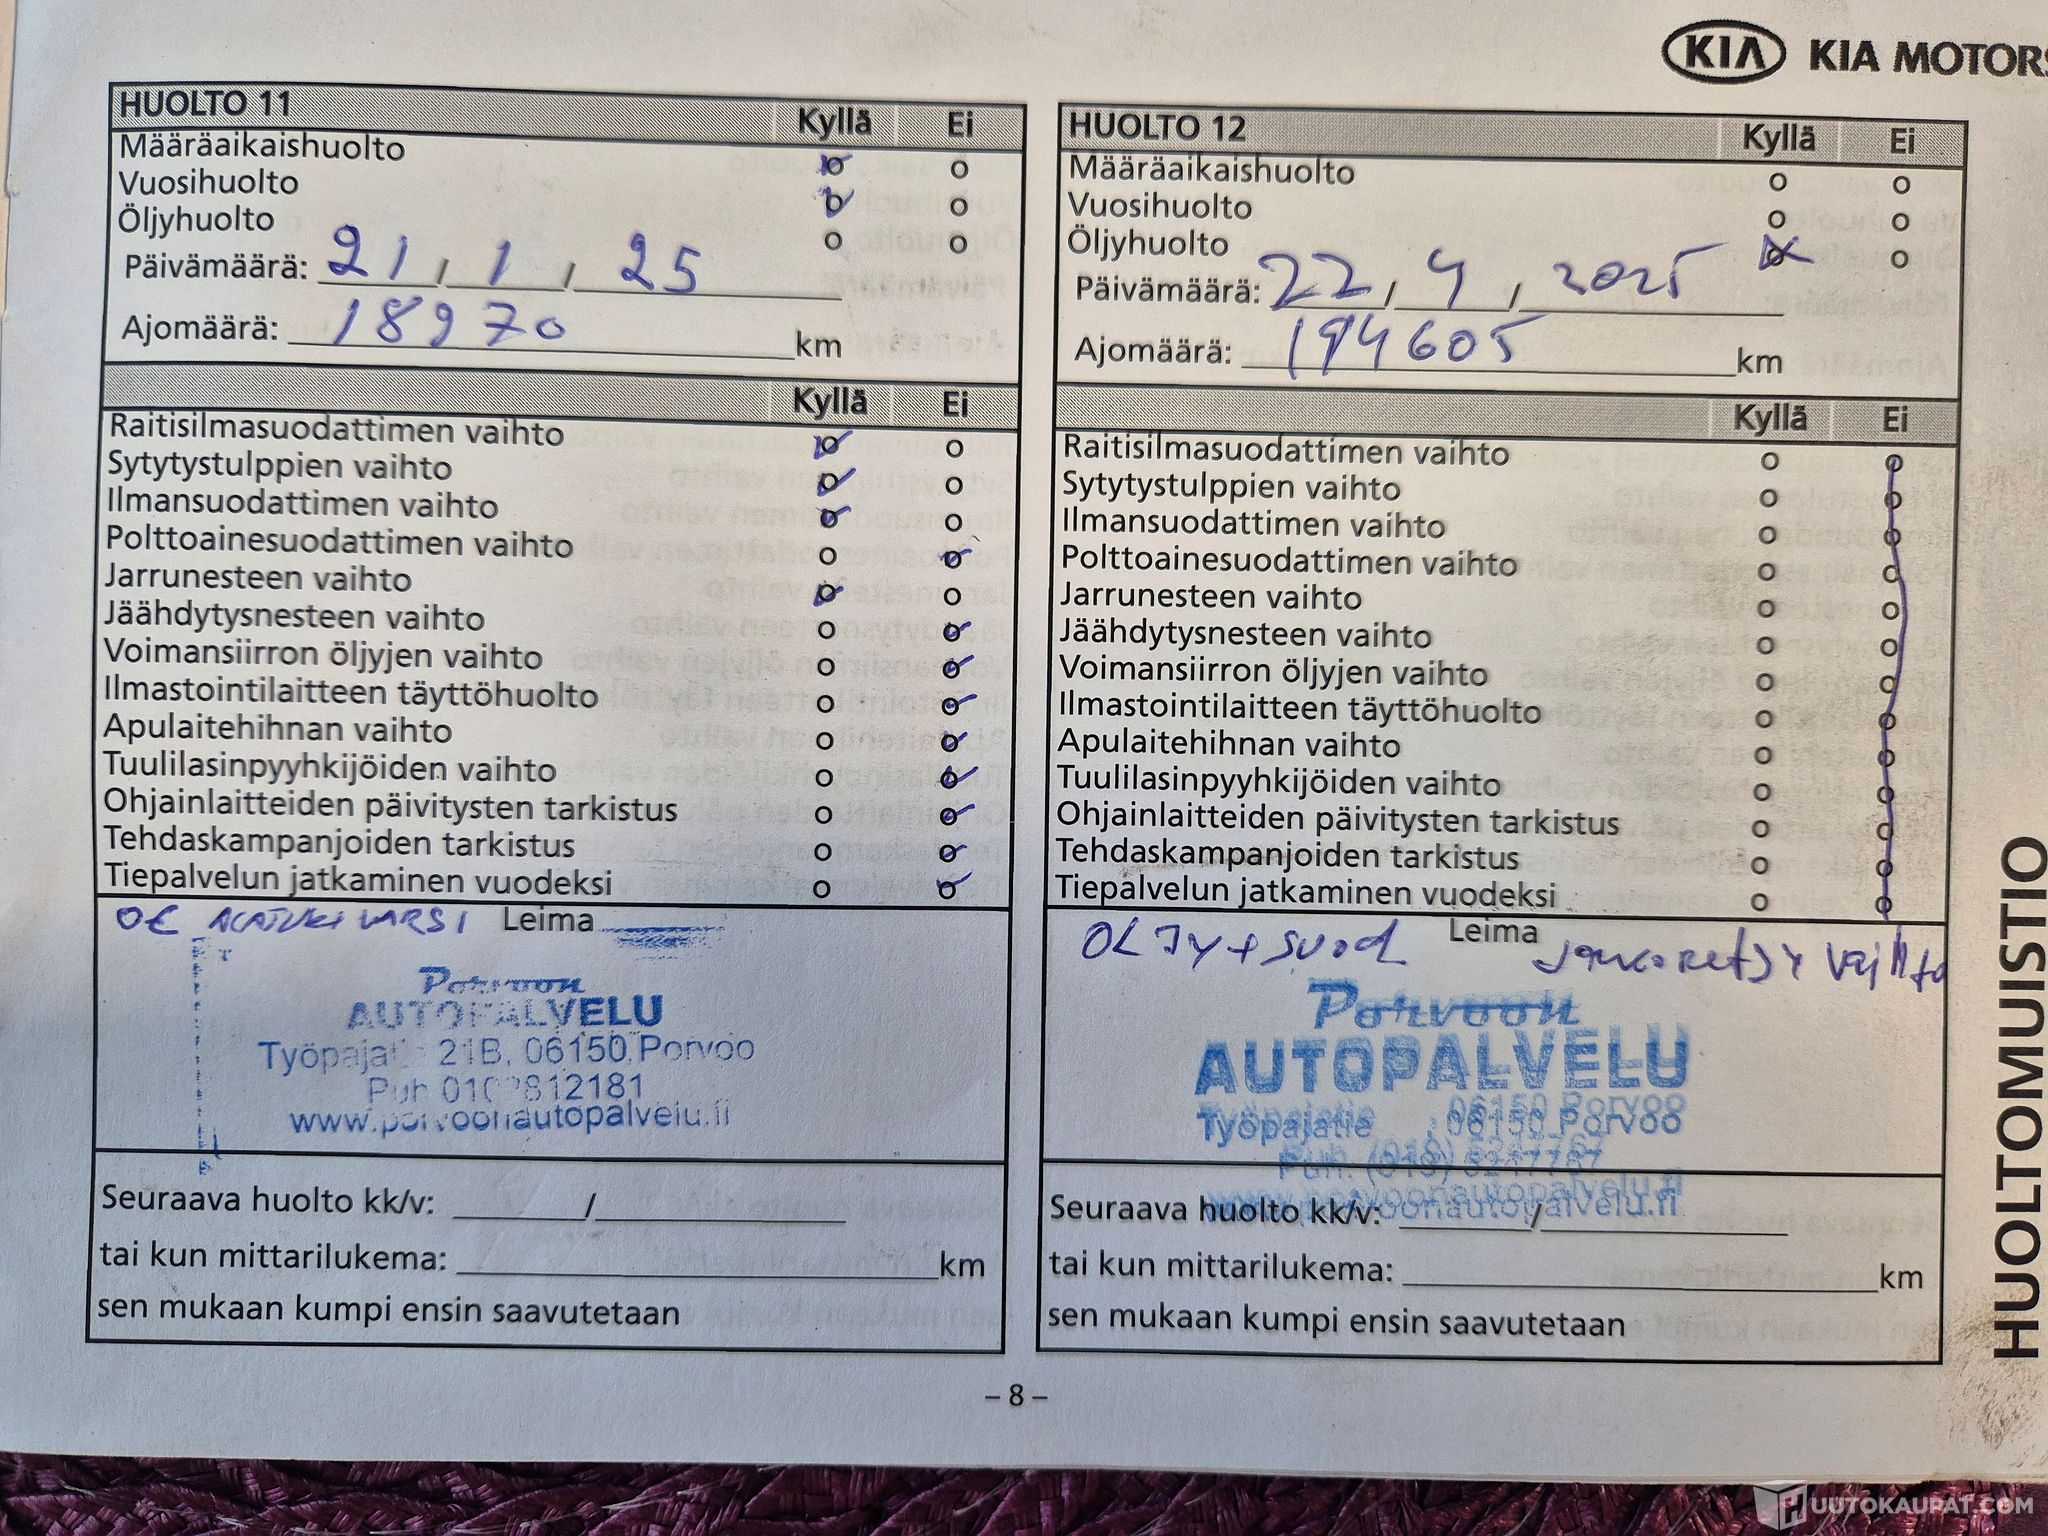 KIA KIA MOTORS
HUOLTO 11 Kyllä Ei
Määräaikaishuolto o o
Vuosihuolto o o
Öljyhuolto o o
Päivämäärä: 21 , 1 , 25
Ajomäärä: 18970 km
Kyllä Ei
Raitisilmasuodattimen vaihto o o
Sytytystulppien vaihto o o
Ilmansuodattimen vaihto o o
Polttoainesuodattimen vaihto o o
Jarrunesteen vaihto o o
Jäähdytysnesteen vaihto o o
Voimansiirron öljyjen vaihto o o
Ilmastointilaitteen täyttöhuolto o o
Apulaitehihnan vaihto o o
Tuulilasinpyyhkijöiden vaihto o o
Ohjainlaitteiden päivitysten tarkistus o o
Tehdaskampanjoiden tarkistus o o
Tiepalvelun jatkaminen vuodeksi o o
OE ALATUKIVARSI Leima
Porvoon
AUTOPALVELU
Työpajatie 21B, 06150 Porvoo
Puh 0102812181
www.porvoonautopalvelu.fi
Seuraava huolto kk/v: /
tai kun mittarilukema: km
sen mukaan kumpi ensin saavutetaan
HUOLTO 12 Kyllä Ei
Määräaikaishuolto o o
Vuosihuolto o o
Öljyhuolto o o
Päivämäärä: 22 , 4 , 2025
Ajomäärä: 194605 km
Kyllä Ei
Raitisilmasuodattimen vaihto o o
Sytytystulppien vaihto o o
Ilmansuodattimen vaihto o o
Polttoainesuodattimen vaihto o o
Jarrunesteen vaihto o o
Jäähdytysnesteen vaihto o o
Voimansiirron öljyjen vaihto o o
Ilmastointilaitteen täyttöhuolto o o
Apulaitehihnan vaihto o o
Tuulilasinpyyhkijöiden vaihto o o
Ohjainlaitteiden päivitysten tarkistus o o
Tehdaskampanjoiden tarkistus o o
Tiepalvelun jatkaminen vuodeksi o o
OLJY + SUOD Leima vaihto
Porvoon
AUTOPALVELU
Työpajatie , 06150 Porvoo
Puh. (019) 5247767
www.porvoonautopalvelu.fi
Seuraava huolto kk/v: /
tai kun mittarilukema: km
sen mukaan kumpi ensin saavutetaan
HUOLTOMUISTIO
– 8 –
HUUTOKAUPAT.COM